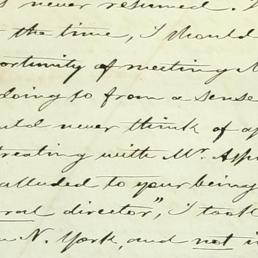 never resumed.
the time, I should
of meeting
doing so from a sense
never think of
treating with Mr. App
alluded to your being
director", I took
N. York, and not i